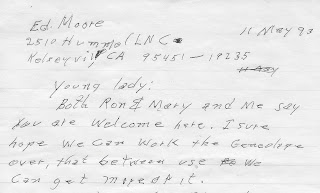 Ed. Moore
11 May 93
2510 Hummel LN C
Kelseyvil, CA 95451-19235
Young lady:
Both Ron & Mary and Me say
You are welcome here. I sure
hope we can work the Geneologe
over, that between use we
Can get more of it.